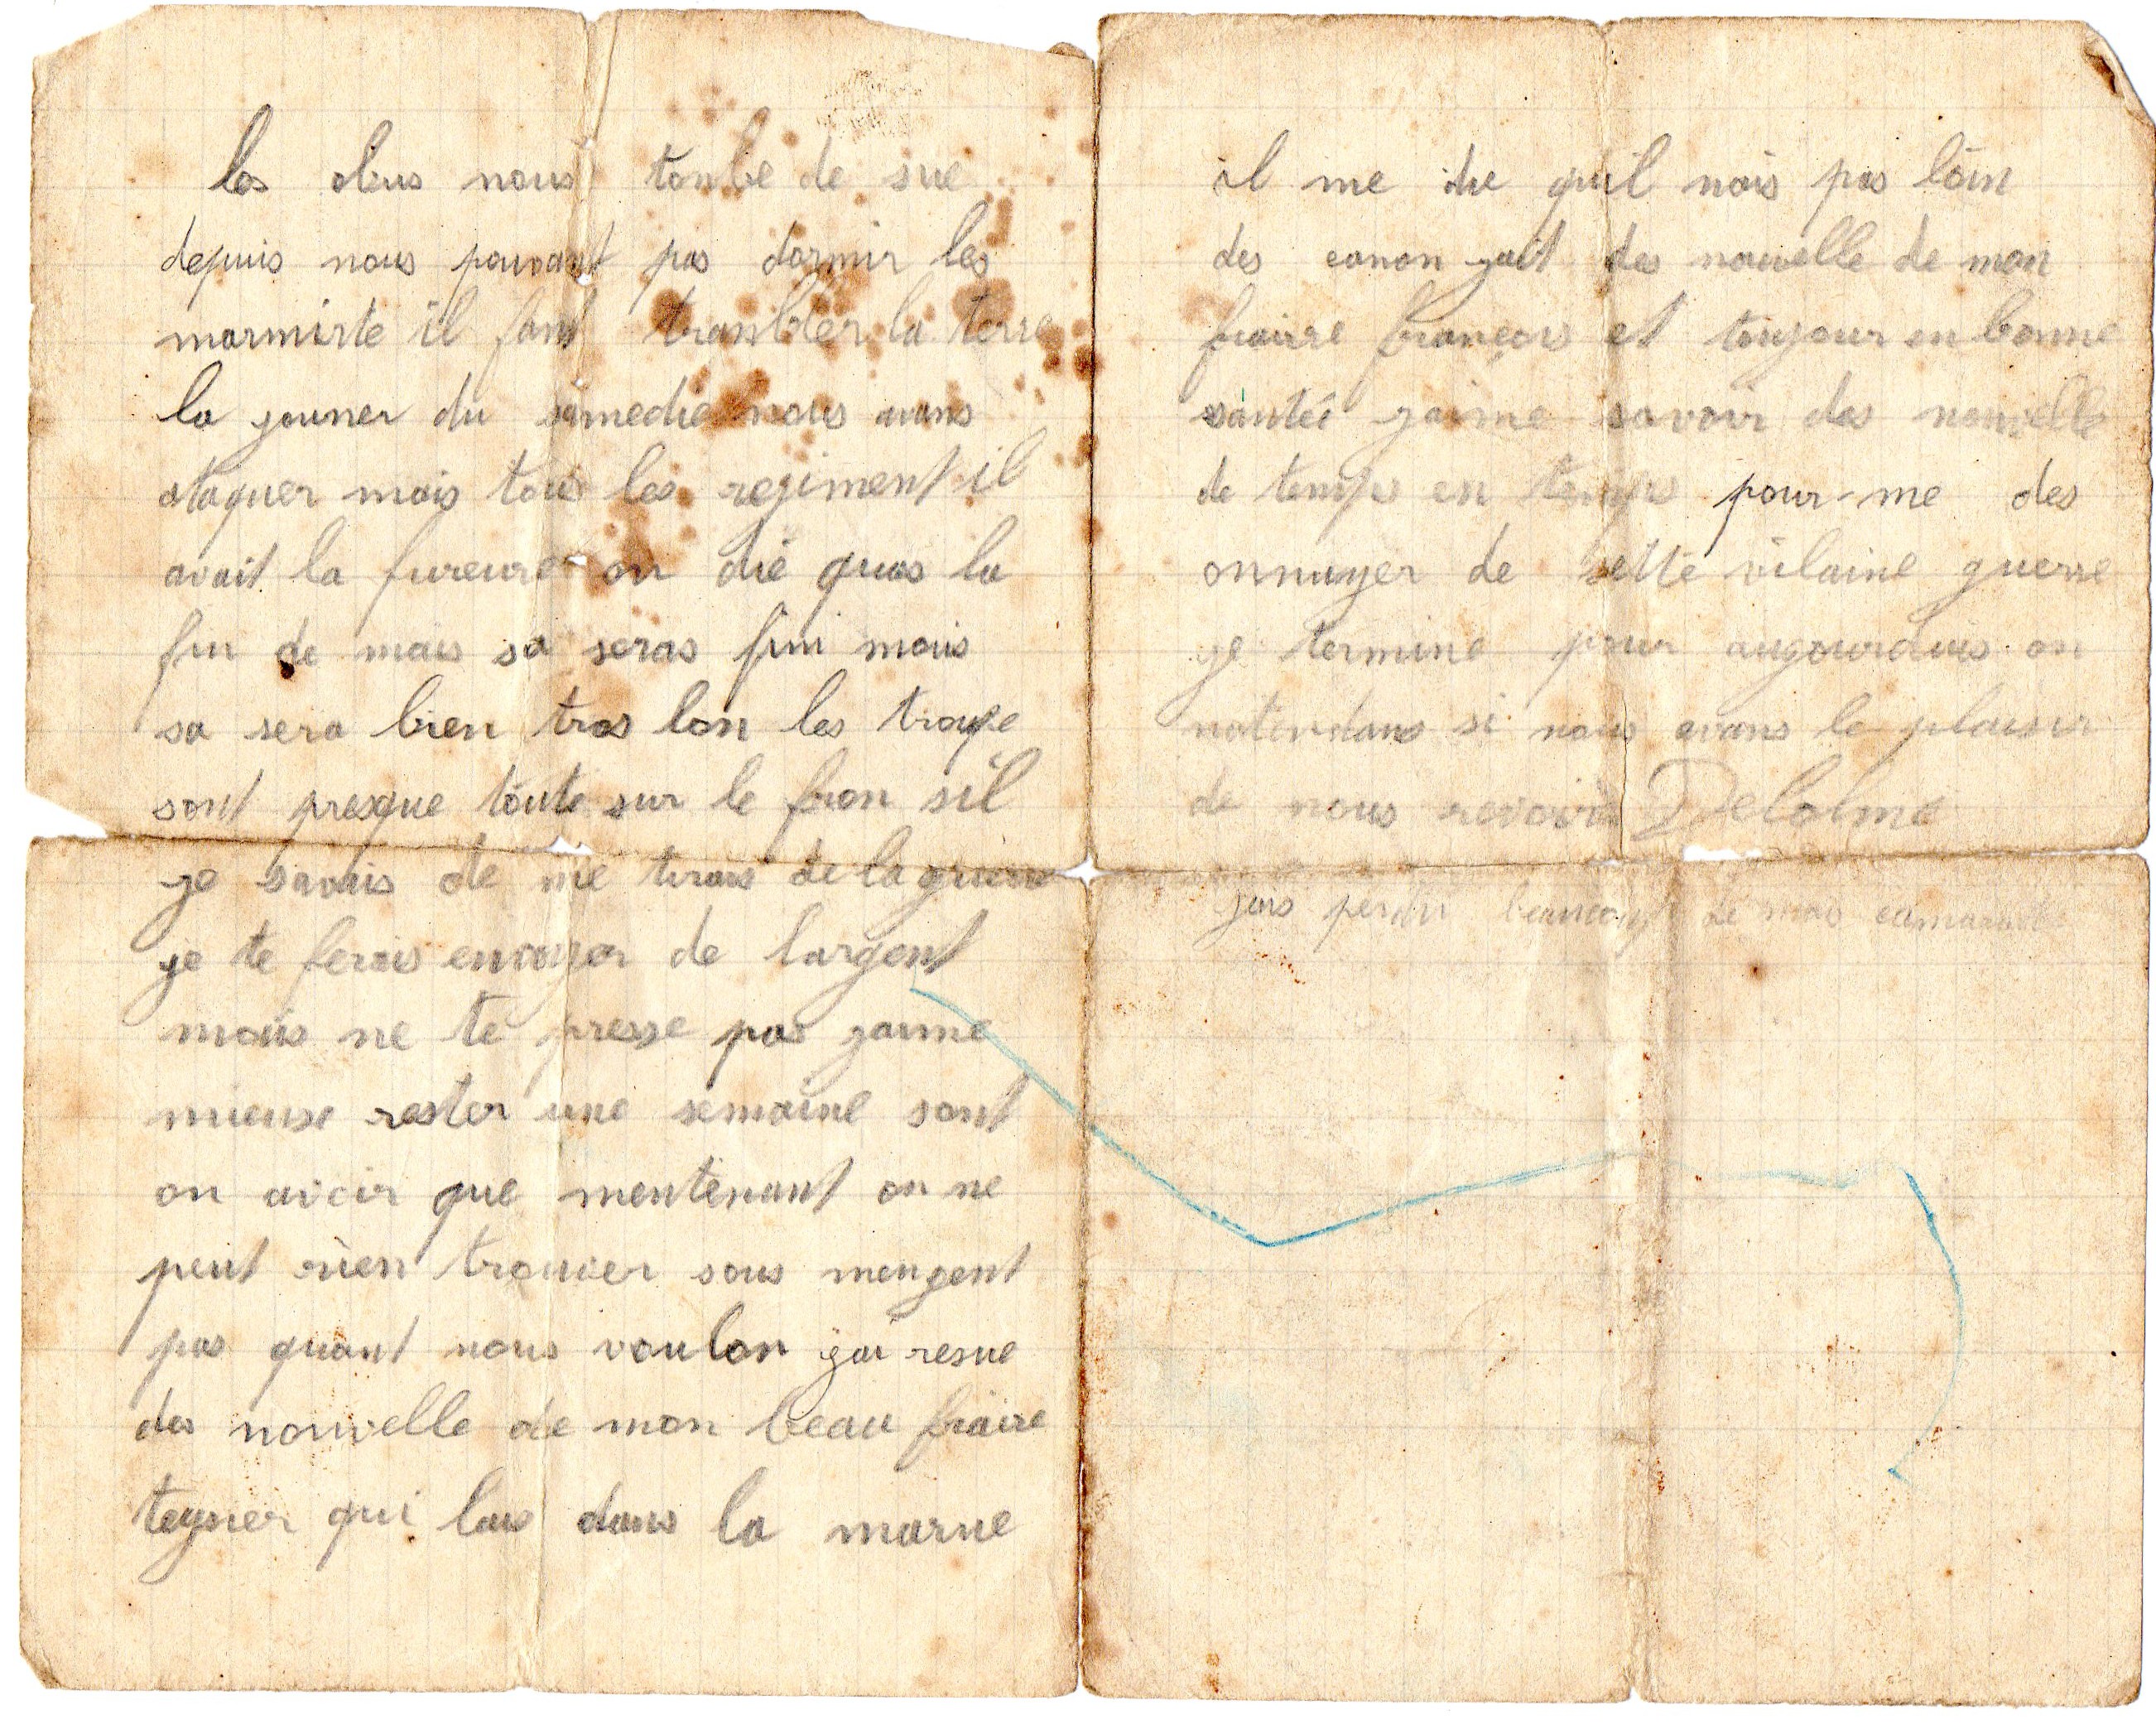 les obus nous tonbe de sue
depuis nous pouvont pas dormir les
marmiste il font tranbler la terre
la jouner du samedie nous avons
ataquer mais tous les regiment il
avait la fureure on die quas la
fin de mais sa seras fini mais
sa sera bien tros lon les troupe
sont presque toute sur le fron sil
je savais de me tirais de la guerre
je te ferais envoyer de largent
mais ne te presse pas jaime
mieuse rester une semaine sont
on avoir que mentenant on ne
peut rien trouver sous mengent
pas quant nous voulon jai resue
des nouvelle de mon beau fraire
teyner qui lais dans la marne
il me die quil nais pas loin
des canon jait des nouvelle de mon
frairre françois et toujour en bonne
santéi jaime savoir des nouvelle
de temps en temps pour-me des
onnuyer de sette vilaine guerre
je termine pour augourduis on
natendans si nous avons le plaisir
de nous revoire Delolme
jais perdu beaucoup de mais camarade